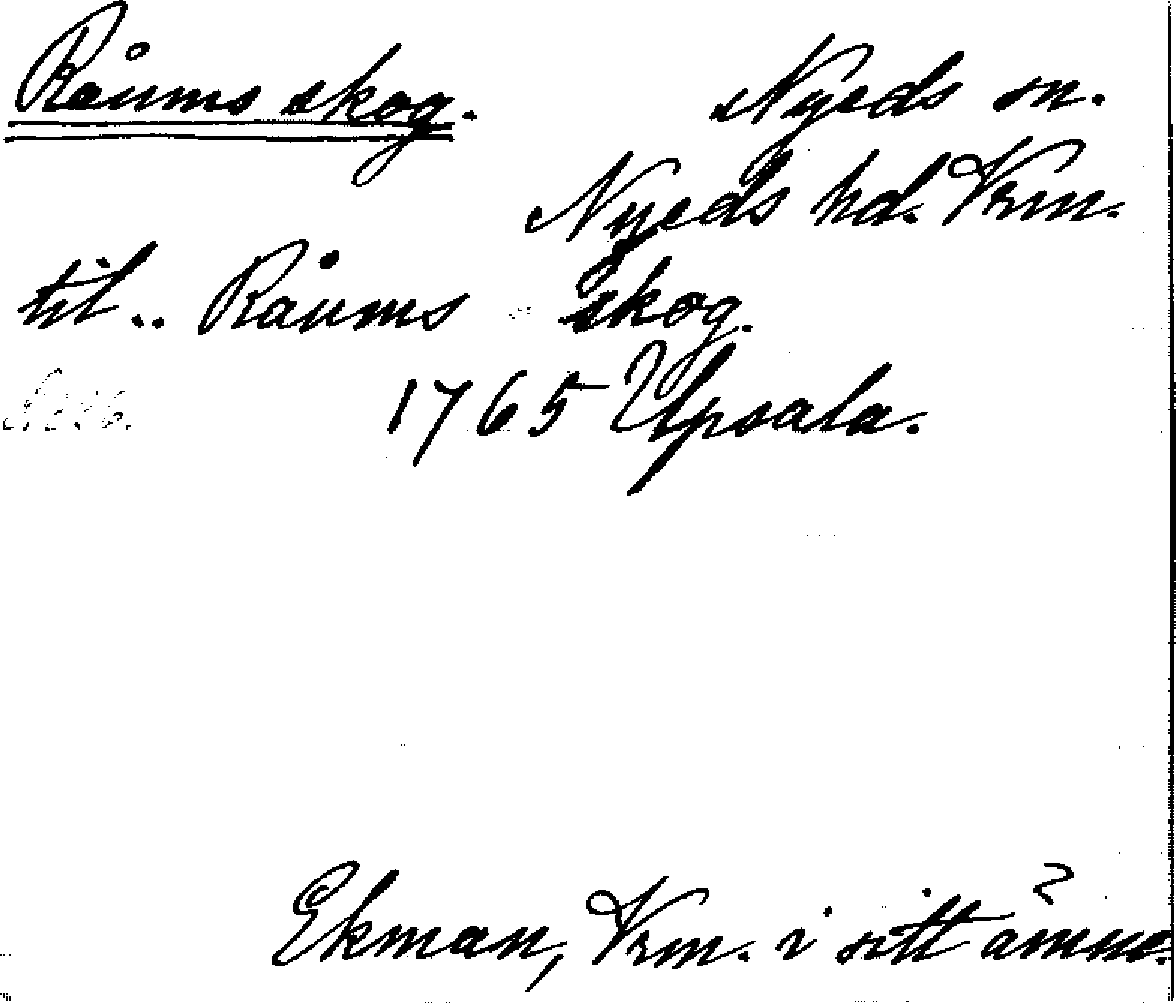 Råums skog. Nyeds sn.
Nyeds hd. Vrm.
til .. Råums skog.
1765 Upsala.
Ekman, Vrm. i sitt ämne.